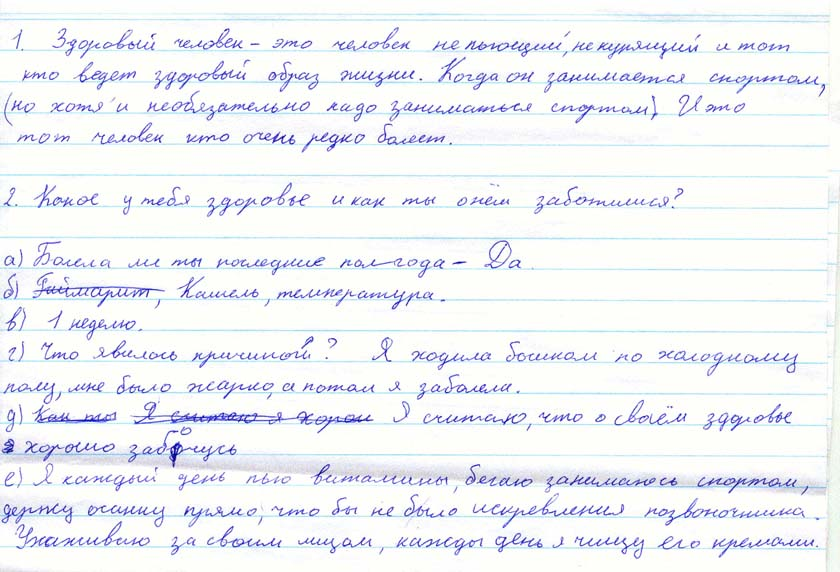 1. Здоровый человек – это человек не пьющий, не курящий и тот
кто ведет здоровый образ жизни. Когда он занимается спортом,
(но хотя и необязательно надо заниматься спортом). И это
тот человек кто очень редко болеет.
2. Какое у тебя здоровье и как ты о нём заботишся?
а) Болела ли ты последние пол года – Да.
б) Гаймарит, Кашель, температура.
в) 1 неделю.
г) Что явилось причиной? Я ходила босиком по холодному
полу, мне было жарко, а потом я заболела.
д) Как ты Я считаю я хорош Я считаю, что о своём здоровье
хорошо забочусь
е) Я каждый день пью витамины, бегаю занимаюсь спортом,
держу осанку прямо, что бы не было искревления позвоночника.
Ухаживаю за своим лицом, кажды день я чищу его кремами.